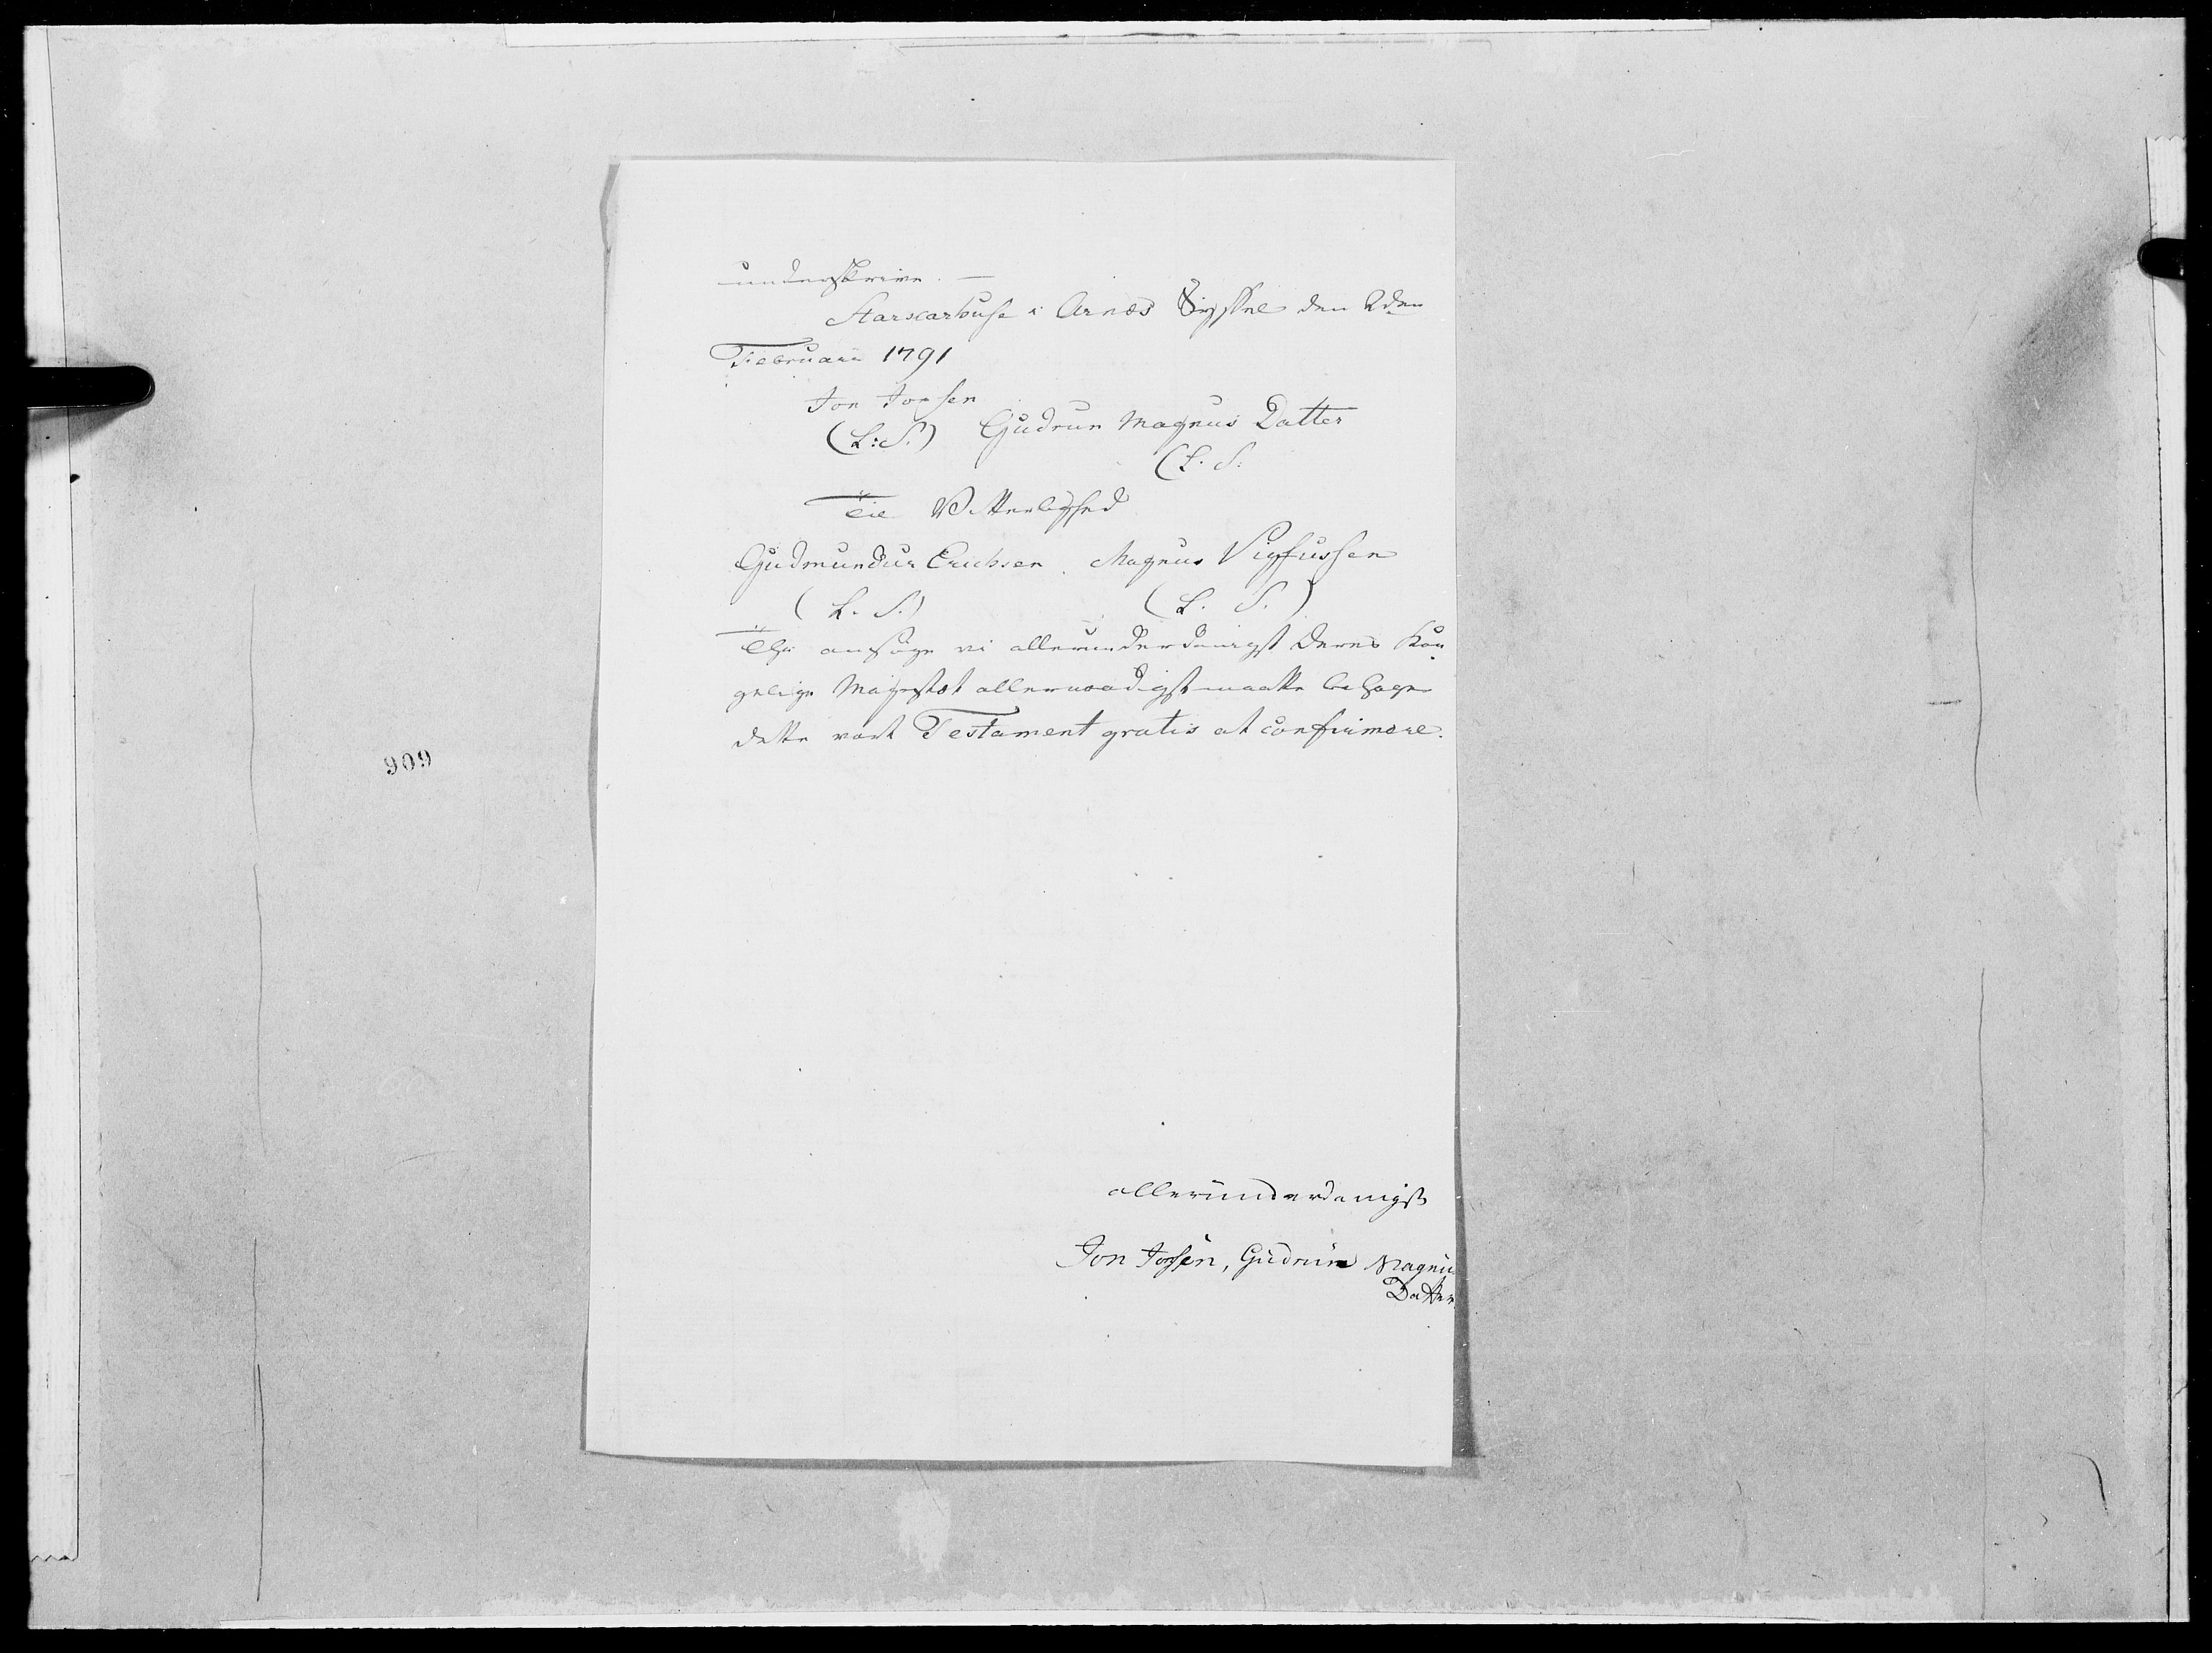 underskrive. —
Starcarhuse i Arnæs Syssel den 2den
Februarii 1791
Jon Jonsen
(L:S.) Gudrun Magnus Datter
(L. S:
Til Vitterlighed
Gudmundur Erichsen. Magnus Vigfussen
(L. S.) (L. S.)
Thi ansøge vi allerunderdanigst Deres Kon
gelige Majestæt allernaadigst maatte behage
dette vort Testament gratis at confirmere.
allerunderdanigst
Jon Jonsen, Gudrun Magnus
Datter
909